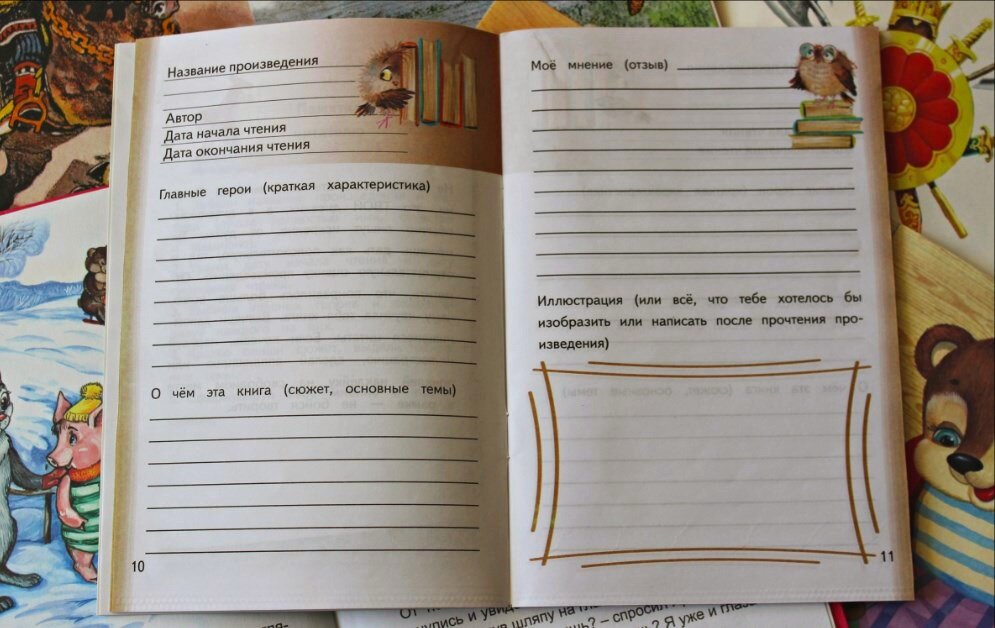 Название произведения
Автор
Дата начала чтения
Дата окончания чтения
Главные герои (краткая характеристика)
О чём эта книга (сюжет, основные темы)
10
Моё мнение (отзыв)
Иллюстрация (или всё, что тебе хотелось бы
изобразить или написать после прочтения про-
изведения)
11
и увид
шляпу на
– спросил
? Я уже и